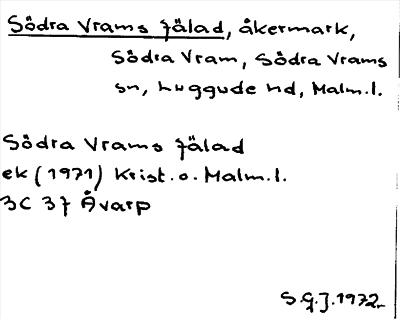 Södra Vrams fälad, åkermark,
Södra Vram, Södra Vrams
sn, Luggude hd, Malm.l.
Södra Vrams fälad
ek (1971) Krist. o. Malm.l.
3C 37 Åvarp
S.G.J. 1972.